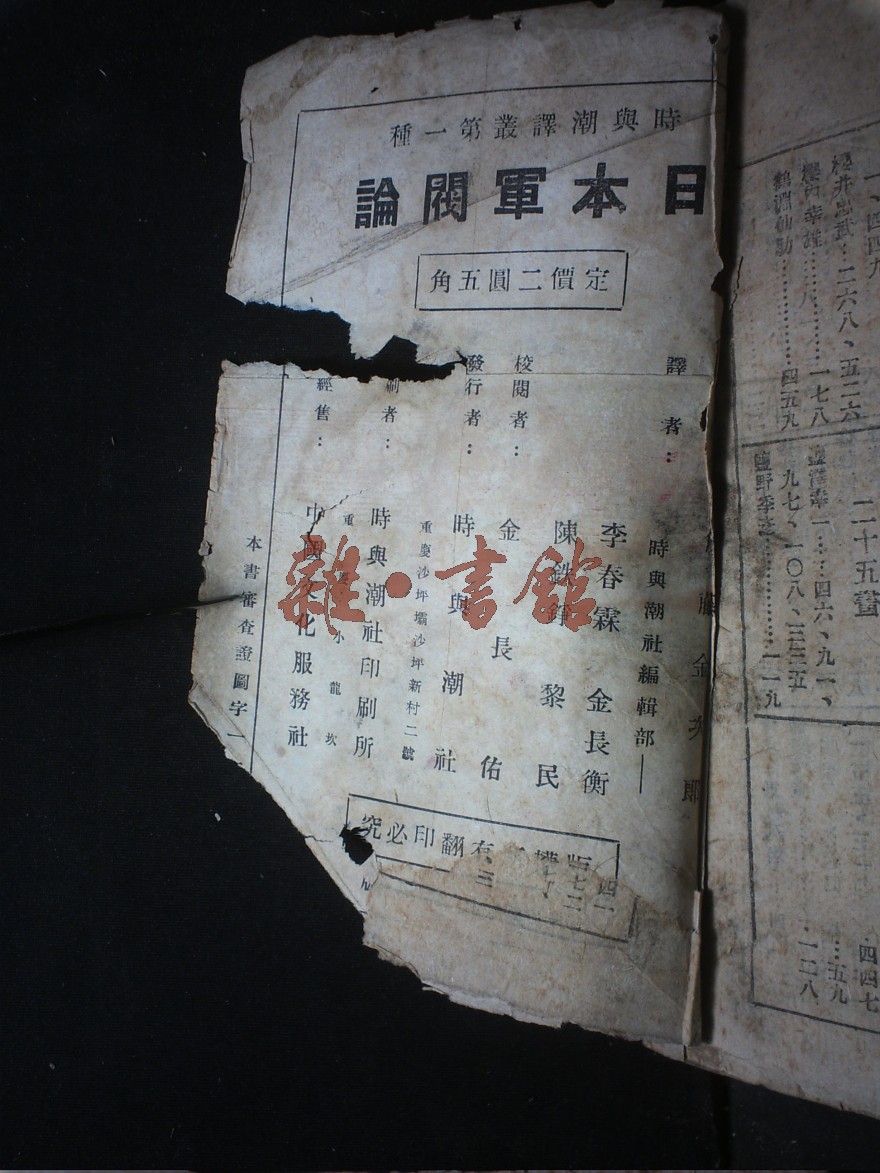 時與潮譯叢第一種
日本軍閥論
定價二圓五角
譯者：
時與潮社編輯部——
李春霖 金長衡
陳鉄錚 黎民
校閱者：
金長佑
發行者：
時與潮社
重慶沙坪壩沙坪新村二號
刷者：
時與潮社印刷所
重小龍坎
經售：
中國文化服務社
本書審查證圖字一
版權有翻印必究
雜·書館
一、四四九
櫻井忠武…二六八、五二六
一七八
四五九
二十五畫
鹽澤幸一……四六、九一、
九七、一〇八、三三五
鹽野季彥…………一一九
四四七
五九
一二八